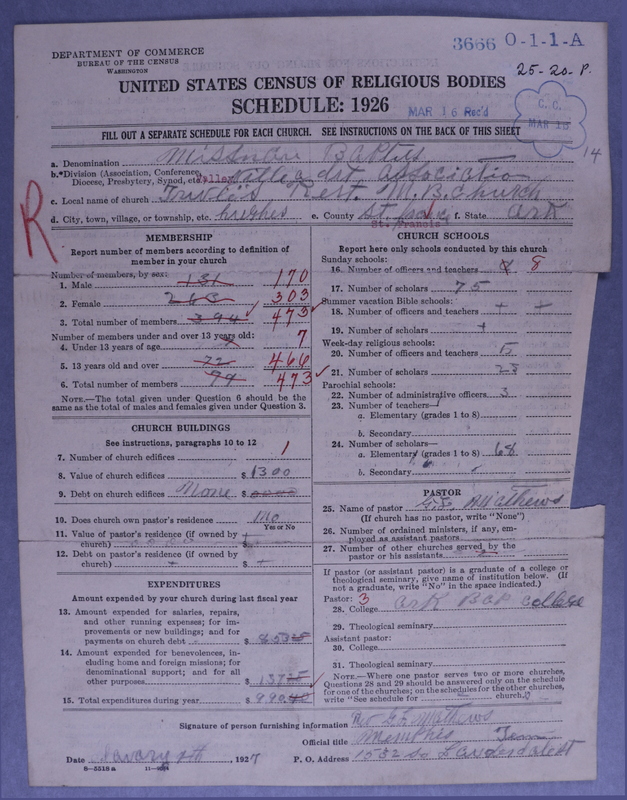 DEPARTMENT OF COMMERCE
BUREAU OF THE CENSUS
WASHINGTON
3666 O-1-1-A
25-20-P.
UNITED STATES CENSUS OF RELIGIOUS BODIES
SCHEDULE: 1926
MAR 16 Rec'd
C. C.
MAR 18
14
FILL OUT A SEPARATE SCHEDULE FOR EACH CHURCH. SEE INSTRUCTIONS ON THE BACK OF THIS SHEET
a. Denomination Baptis
b.*Division (Association, Conference, Diocese, Presbytery, Synod, etc. dist association
c. Local name of church Rest. M.B. Church
d. City, town, village, or township, etc. hughes e. County St. Francis f. State Ark
R
MEMBERSHIP
Report number of members according to definition of member in your church
Number of members, by sex:
1. Male 131 170
2. Female 263 303
3. Total number of members 394 473
Number of members under and over 13 years old:
4. Under 13 years of age 7
5. 13 years old and over 72 466
6. Total number of members 79 473
NOTE.—The total given under Question 6 should be the same as the total of males and females given under Question 3.
CHURCH BUILDINGS
See instructions, paragraphs 10 to 12
7. Number of church edifices 1
8. Value of church edifices $1300
9. Debt on church edifices None $
10. Does church own pastor's residence No
Yes or No
11. Value of pastor's residence (if owned by church) $
12. Debt on pastor's residence (if owned by church) + $ +
EXPENDITURES
Amount expended by your church during last fiscal year
13. Amount expended for salaries, repairs, and other running expenses; for improvements or new buildings; and for payments on church debt $ 853
14. Amount expended for benevolences, including home and foreign missions; for denominational support; and for all other purposes $ 137
15. Total expenditures for year $ 990
CHURCH SCHOOLS
Report here only schools conducted by this church
Sunday schools:
16. Number of officers and teachers 8 8
17. Number of scholars 75
Summer vacation Bible schools:
18. Number of officers and teachers + +
19. Number of scholars +
Week-day religious schools:
20. Number of officers and teachers
21. Number of scholars 25
Parochial schools:
22. Number of administrative officers 3
23. Number of teachers—
a. Elementary (grades 1 to 8)
b. Secondary
24. Number of scholars—
a. Elementary (grades 1 to 8) 68
b. Secondary
PASTOR
25. Name of pastor Mathews
(If church has no pastor, write "None")
26. Number of ordained ministers, if any, employed as assistant pastors
27. Number of other churches served by the pastor or his assistants 2
If pastor (or assistant pastor) is a graduate of a college or theological seminary, give name of institution below. (If not a graduate, write "No" in the space indicated.)
Pastor: 3
28. College Ark Bap College
29. Theological seminary
Assistant pastor:
30. College
31. Theological seminary
NOTE.—Where one pastor serves two or more churches, Questions 28 and 29 should be answered only on the schedule for one of the churches; on the schedules for the other churches, write "See schedule for church."
Signature of person furnishing information Mathews
Official title Memphis Tenn
Date 1927 P. O. Address 1532 So Lauderdale St
8-5518 a